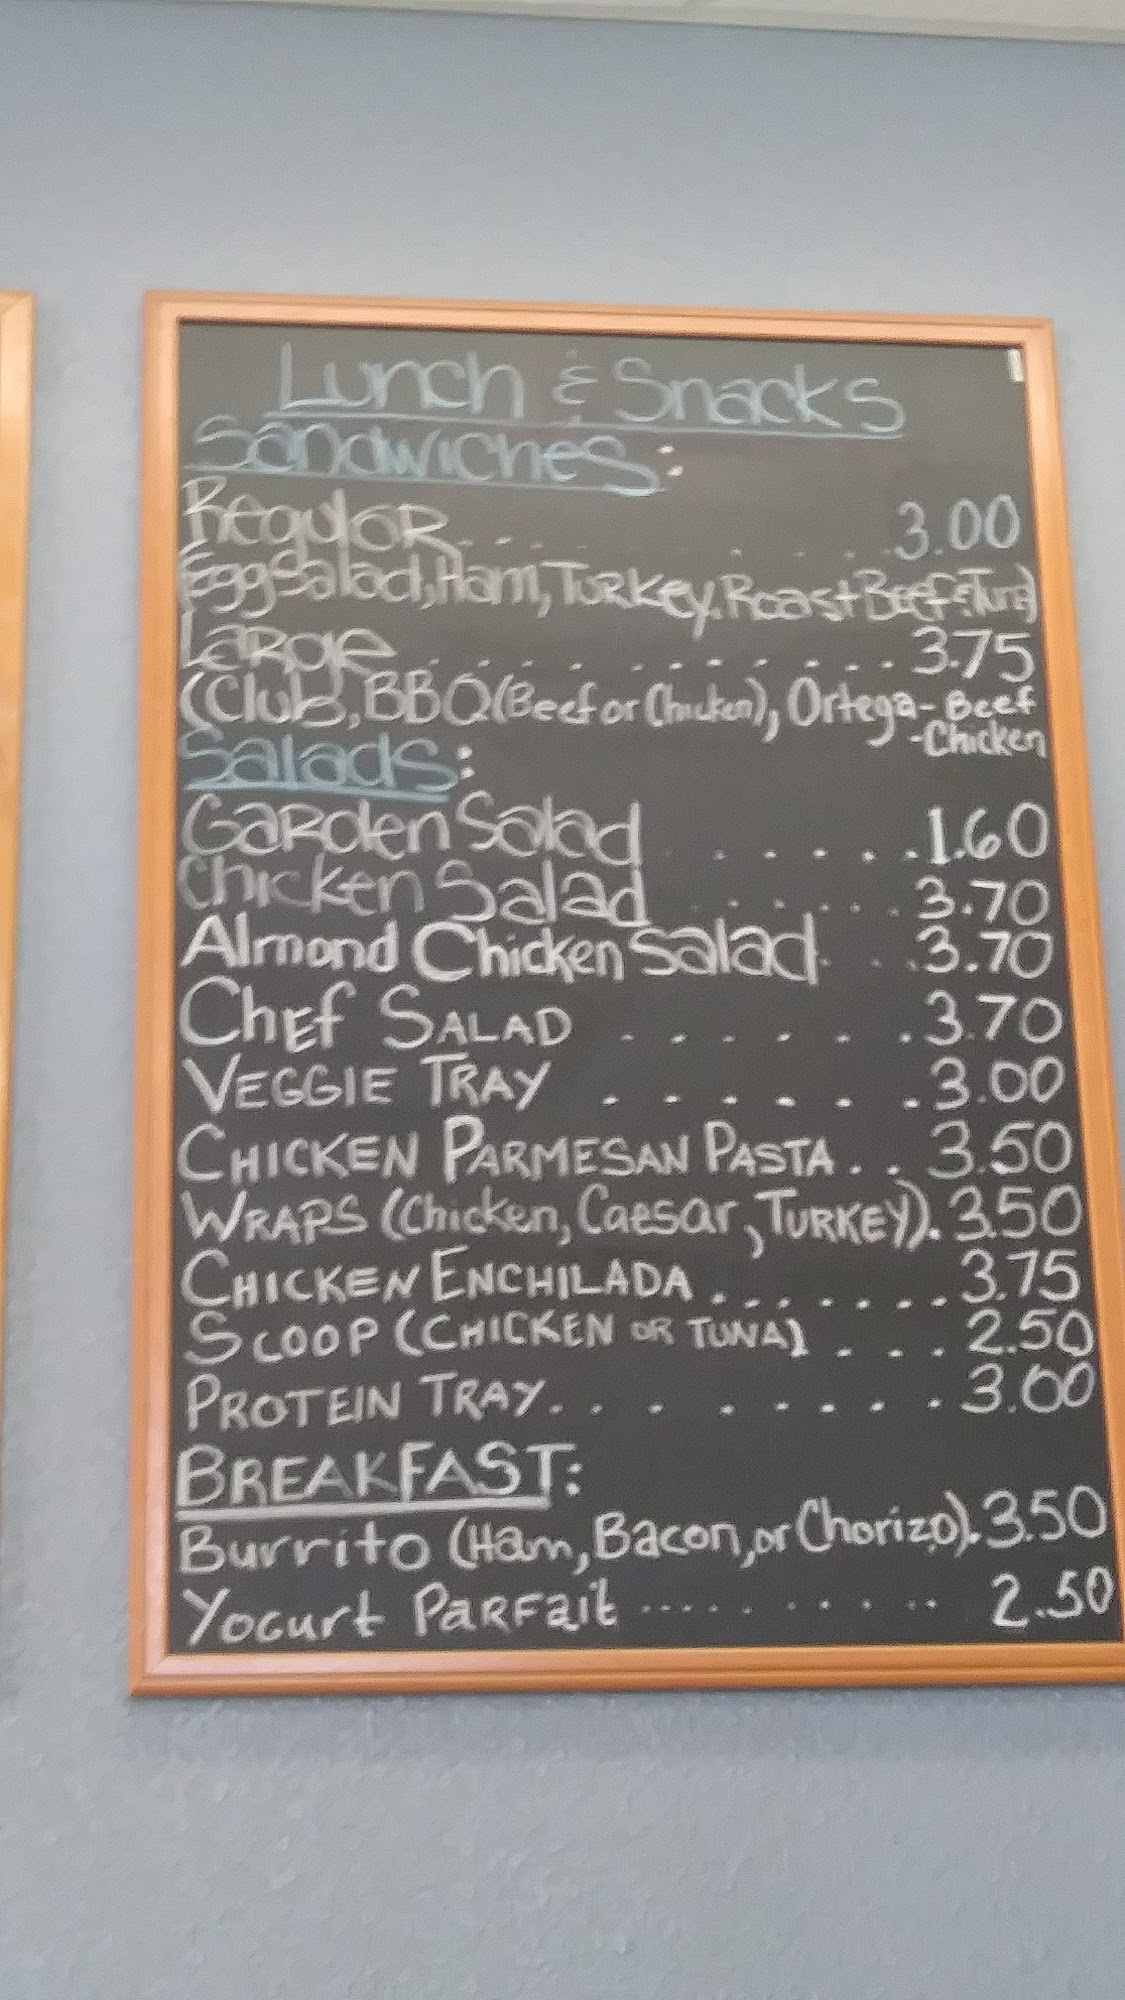 Lunch & Snacks
Sandwiches:
Regular . . . . . . . . 3.00
(Egg Salad, Ham, Turkey, Roast Beef & Tuna)
Large . . . . . . . . . . . 3.75
(Club, BBQ (Beef or Chicken), Ortega - Beef
- Chicken
Salads:
Garden Salad . . . . . . 1.60
Chicken Salad . . . . . . 3.70
Almond Chicken Salad . . . 3.70
Chef Salad . . . . . . 3.70
Veggie Tray . . . . . . 3.00
Chicken Parmesan Pasta . . 3.50
Wraps (Chicken, Caesar, Turkey). 3.50
Chicken Enchilada . . . . . . . 3.75
Scoop (Chicken or Tuna) . . . 2.50
Protein Tray . . . . . . . . 3.00
Breakfast:
Burrito (Ham, Bacon, or Chorizo). 3.50
Yogurt Parfait .......... 2.50